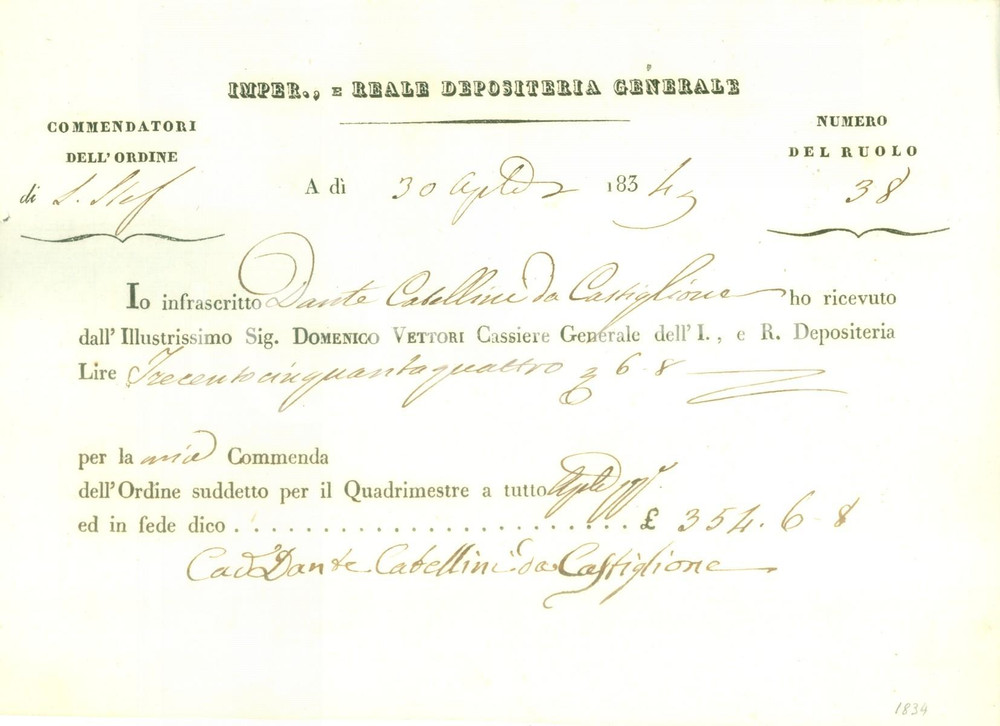 IMPER., E REALE DEPOSITERIA GENERALE
COMMENDATORI
DELL'ORDINE
di S. Stef
NUMERO
DEL RUOLO
38
A dì 30 Aple 1834
Io infrascritto Dante Catellini da Castiglione ho ricevuto
dall'Illustrissimo Sig. DOMENICO VETTORI Cassiere Generale dell'I., e R. Depositeria
Lire Trecentocinquantaquattro 6. 8
per la mia Commenda
dell'Ordine suddetto per il Quadrimestre a tutto Aple
ed in fede dico . . . . . . . . . . . . . . . . . . . . . . . . . . £ 354. 6. 8
Dante Catellini da Castiglione
1834